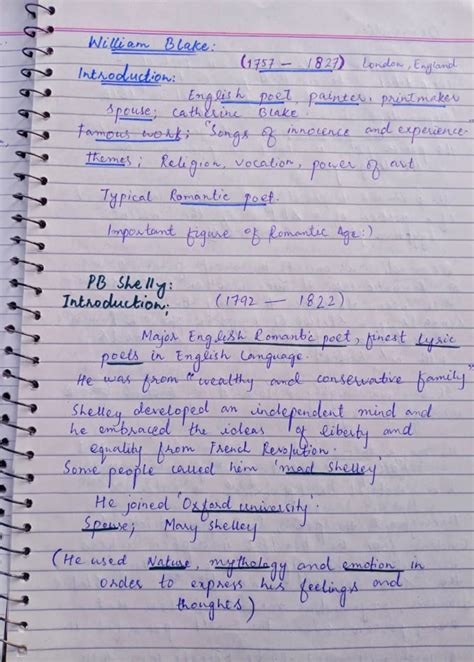 William Blake:
(1757 – 1827) London, England
Introduction:
English poet, painter, printmaker
Spouse; Catherine Blake
Famous work; "Songs of innocence and experience"
themes; Religion, vocation, power of art
Typical Romantic poet.
Important figure of Romantic Age:)
PB Shelly:
Introduction; (1792 – 1822)
Major English Romantic poet, finest lyric
poets in English Language.
He was from "wealthy and conservative family"
Shelley developed an independent mind and
he embraced the ideas of liberty and
equality from French Revolution.
Some people called him 'mad Shelley'
He joined 'Oxford university'.
Spouse; Mary Shelley
(He used Nature, mythology and emotion in
order to express his feelings and
thoughts)